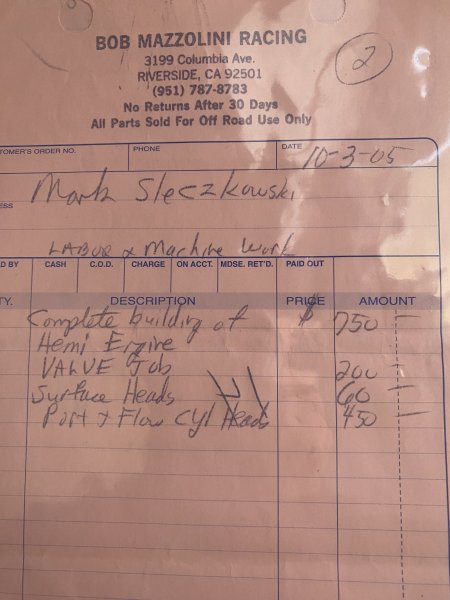 BOB MAZZOLINI RACING
3199 Columbia Ave.
RIVERSIDE, CA 92501
(951) 787-8783
No Returns After 30 Days
All Parts Sold For Off Road Use Only
2
TOMER'S ORDER NO. PHONE DATE 10-3-05
ESS Mark Sleczkowski
LABOR & Machine Work
D BY CASH C.O.D. CHARGE ON ACCT. MDSE. RET'D. PAID OUT
TY. DESCRIPTION PRICE AMOUNT
Complete building of $ 750 —
Hemi Engine
VALVE Job 200 —
Surface Heads 60 —
Port & Flow Cyl Heads 450 —